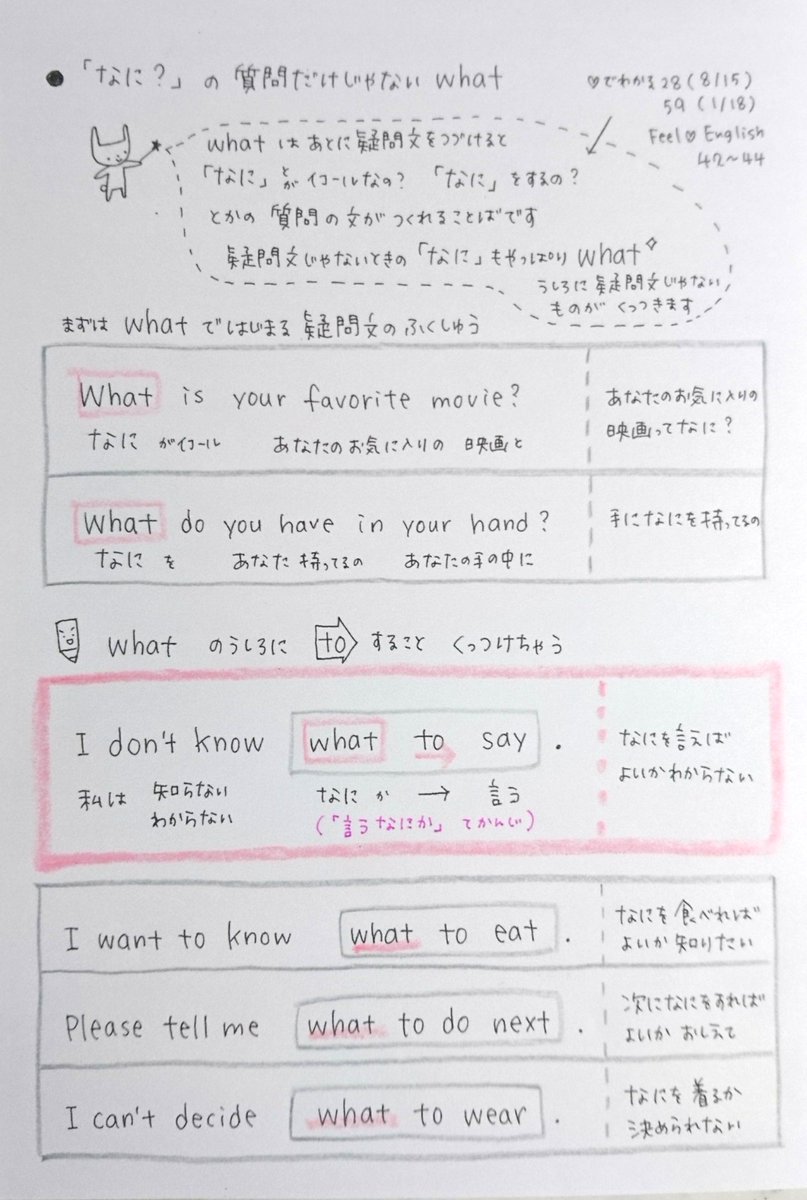 ● 「なに?」の 質問だけじゃない what
♡でわかる28(8/15)
59(1/18)
Feel♡English
42〜44
what は あとに疑問文をつづけると
「なに」とがイコールなの? 「なに」をするの?
とかの 質問の文がつくれることばです
疑問文じゃないときの「なに」もやっぱり what
うしろに疑問文じゃない
ものが くっつきます
まずは what ではじまる 疑問文の ふくしゅう
What is your favorite movie?
なに がイコール あなたのお気に入りの 映画と
あなたのお気に入りの
映画ってなに?
What do you have in your hand?
なに を あなた 持ってるの あなたの手の中に
手になにを持ってるの
what のうしろに to すること くっつけちゃう
I don't know what to say.
私は 知らない なに か → 言う
わからない (「言うなにか」てかんじ)
なにを言えば
よいかわからない
I want to know what to eat.
なにを食べれば
よいか 知りたい
Please tell me what to do next.
次になにをすれば
よいか おしえて
I can't decide what to wear.
なにを着るか
決められない